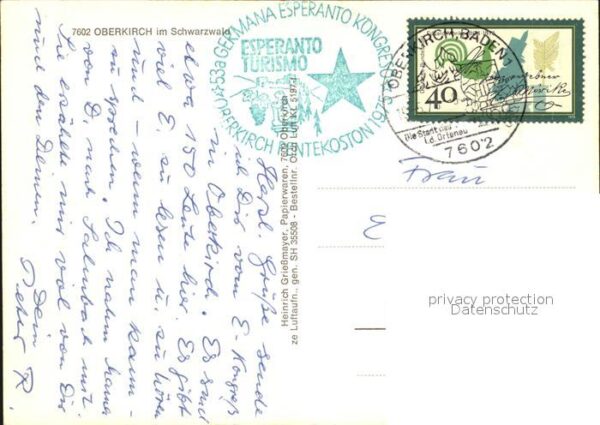 7602 OBERKIRCH im Schwarzwald
53a GERMANA ESPERANTO KONGRESO
ESPERANTO
TURISMO
OBERKIRCH PENTEKOSTON 1975
OBERKIRCH, BADEN 1
Die Stadt der
i.d. Ortenau
7602
40
Mörike
Frau
E
Herzl. Grüße sende
ich Dir vom E-Kongreß
in Oberkirch. Es sind
etwa 150 Leute hier. Es gibt
viel E. zu lesen u. zu hören
und - wenn man kann -
zu sprechen. Ich nahm Mama
von D. nach Sulzbach mit.
Sie erzählte mir viel von Dir
und den Deinen.
Dein
Peter R.
Heinrich Grießmayer, Papierwaren, 7602 Oberkirch
ze Luftaufn., gen. SH 35508 - Bestellnr. Och Lu KL 5197-1
privacy protection
Datenschutz